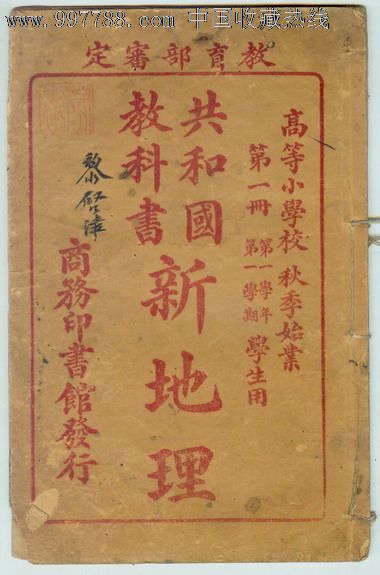 www.997788.com 中国收藏热线
教育部審定
高等小學校 秋季始業
第一冊 第一學年 第一學期 學生用
共和國
教科書
新地理
商務印書館發行